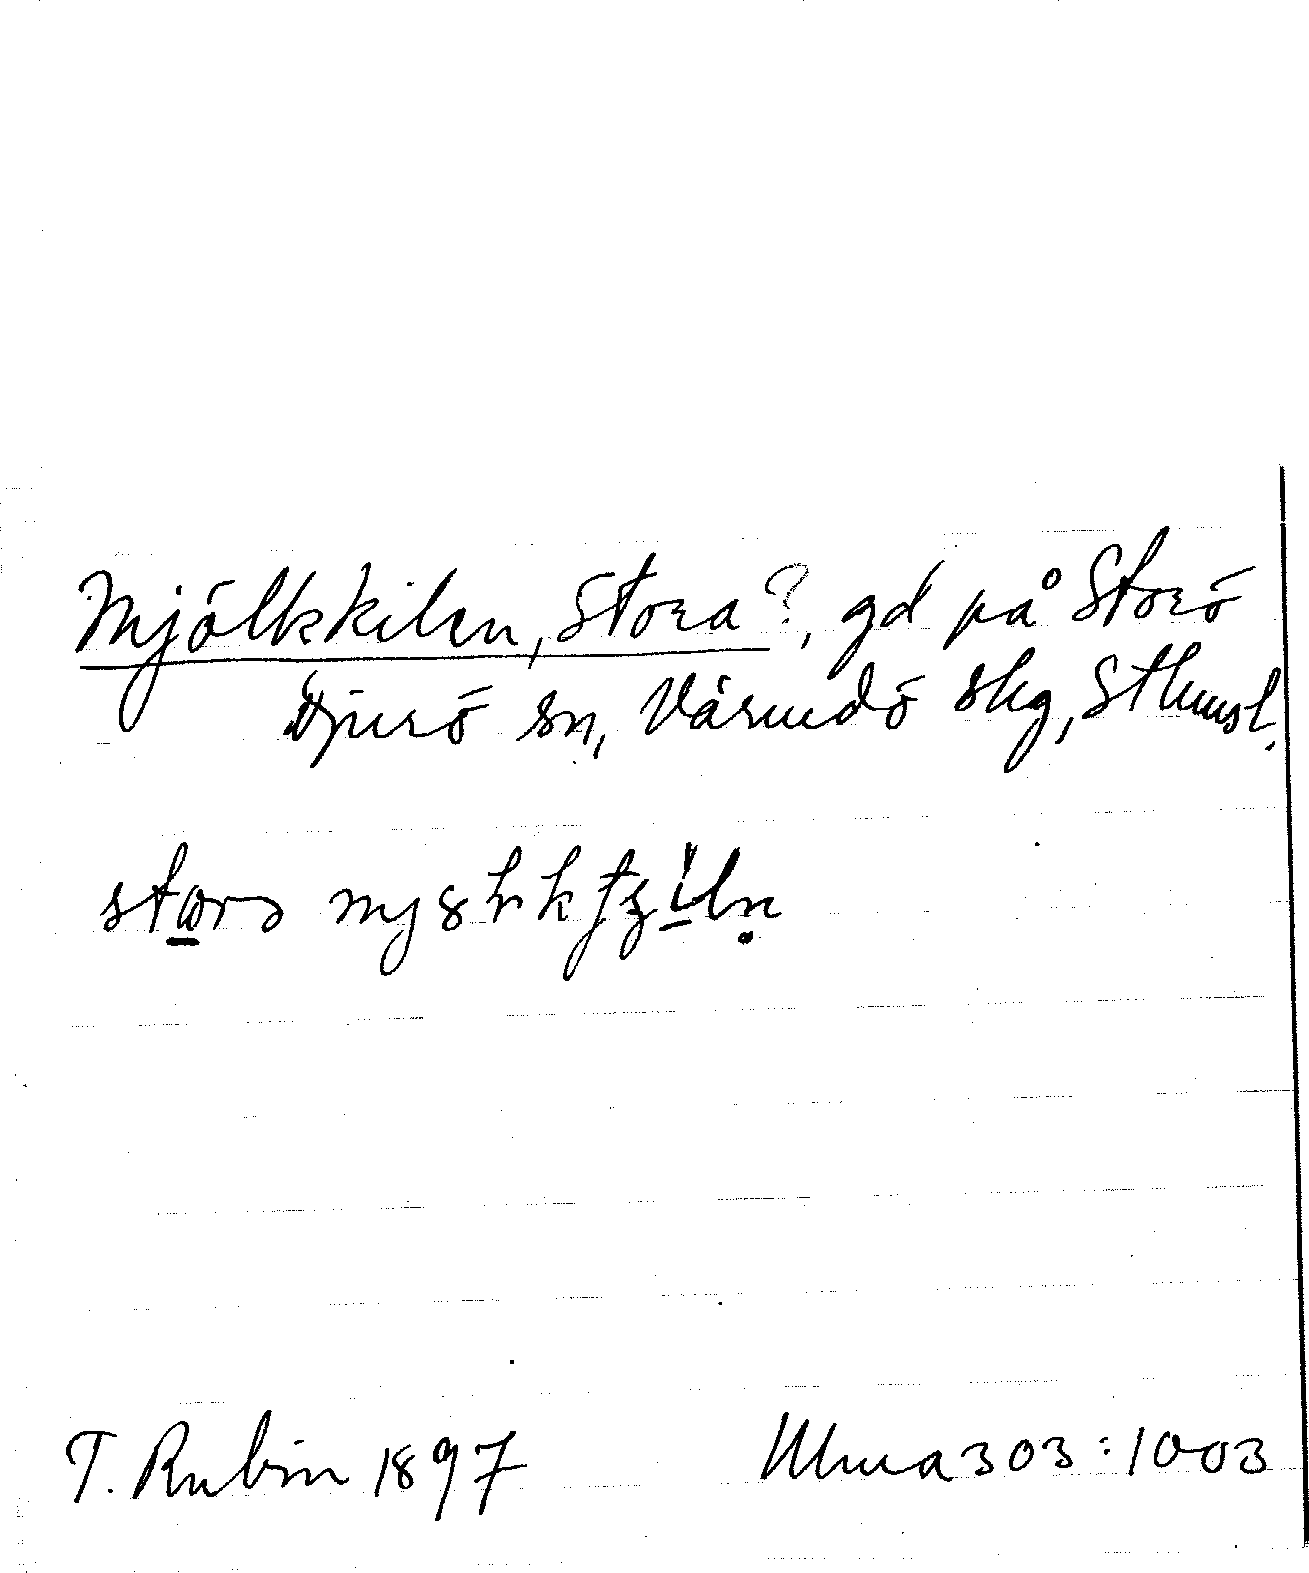 Mjölkkilen, Stora?, gd på Storö
Djurö sn, Värmdö skg, Sthmsl.
T. Rubin 1897
Ulma 303:1003